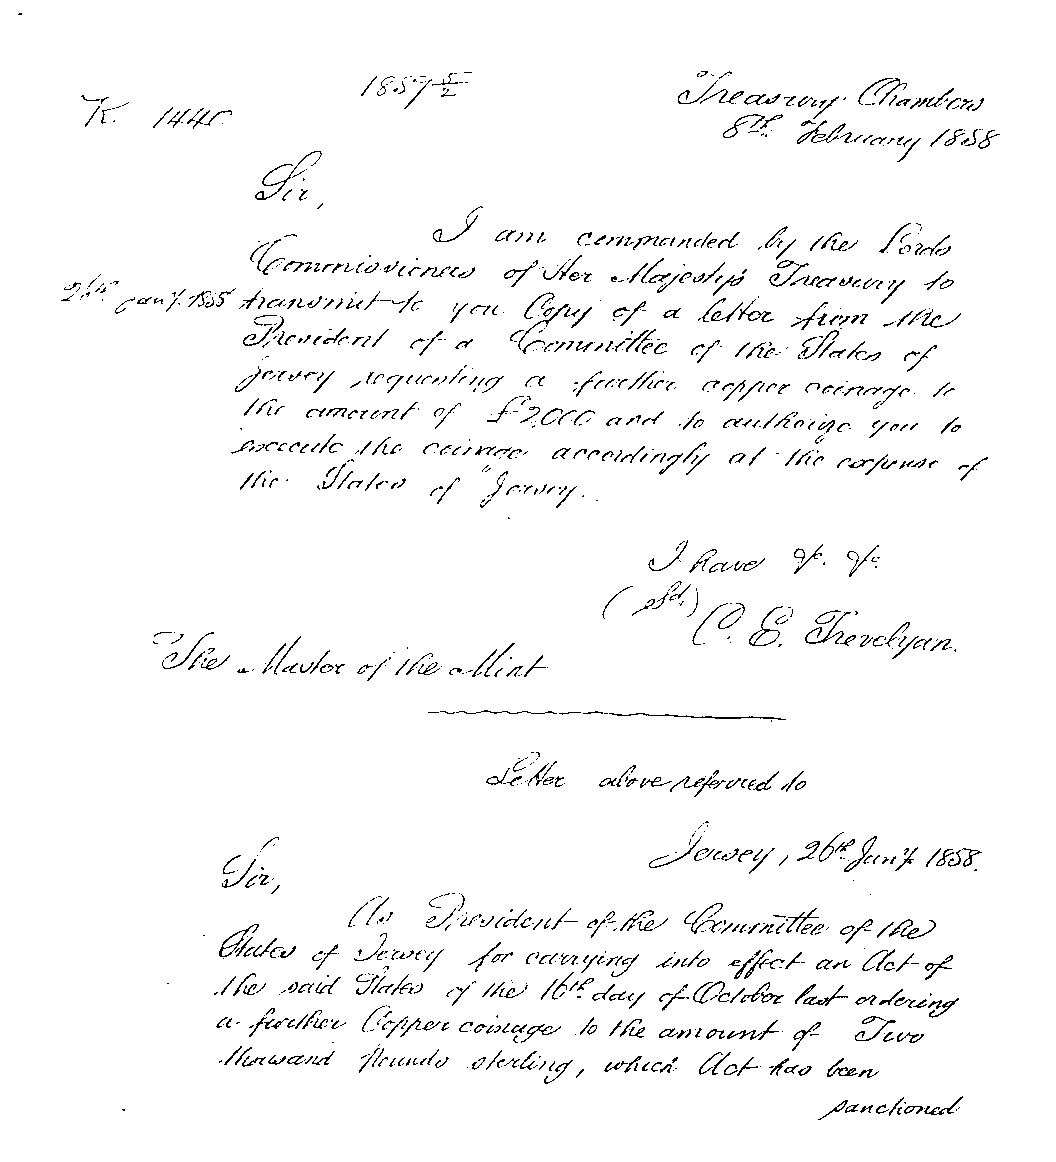 1857 5/2
K. 1440
Treasury Chambers
8th. February 1858
Sir,
I am commanded by the Lords
Commissioners of Her Majesty's Treasury to
26th. Jany. 1858 transmit to you Copy of a letter from the
President of a Committee of the States of
Jersey requesting a further copper coinage to
the amount of £2,000 and to authorize you to
execute the coinage accordingly at the expense of
the States of Jersey.
I have &c. &c.
(sd.) C. E. Trevelyan.
The Master of the Mint
Letter above referred to
Jersey, 26th. Jany. 1858.
Sir,
As President of the Committee of the
States of Jersey for carrying into effect an Act of
the said States of the 16th. day of October last ordering
a further Copper coinage to the amount of Two
thousand Pounds sterling, which Act has been
sanctioned